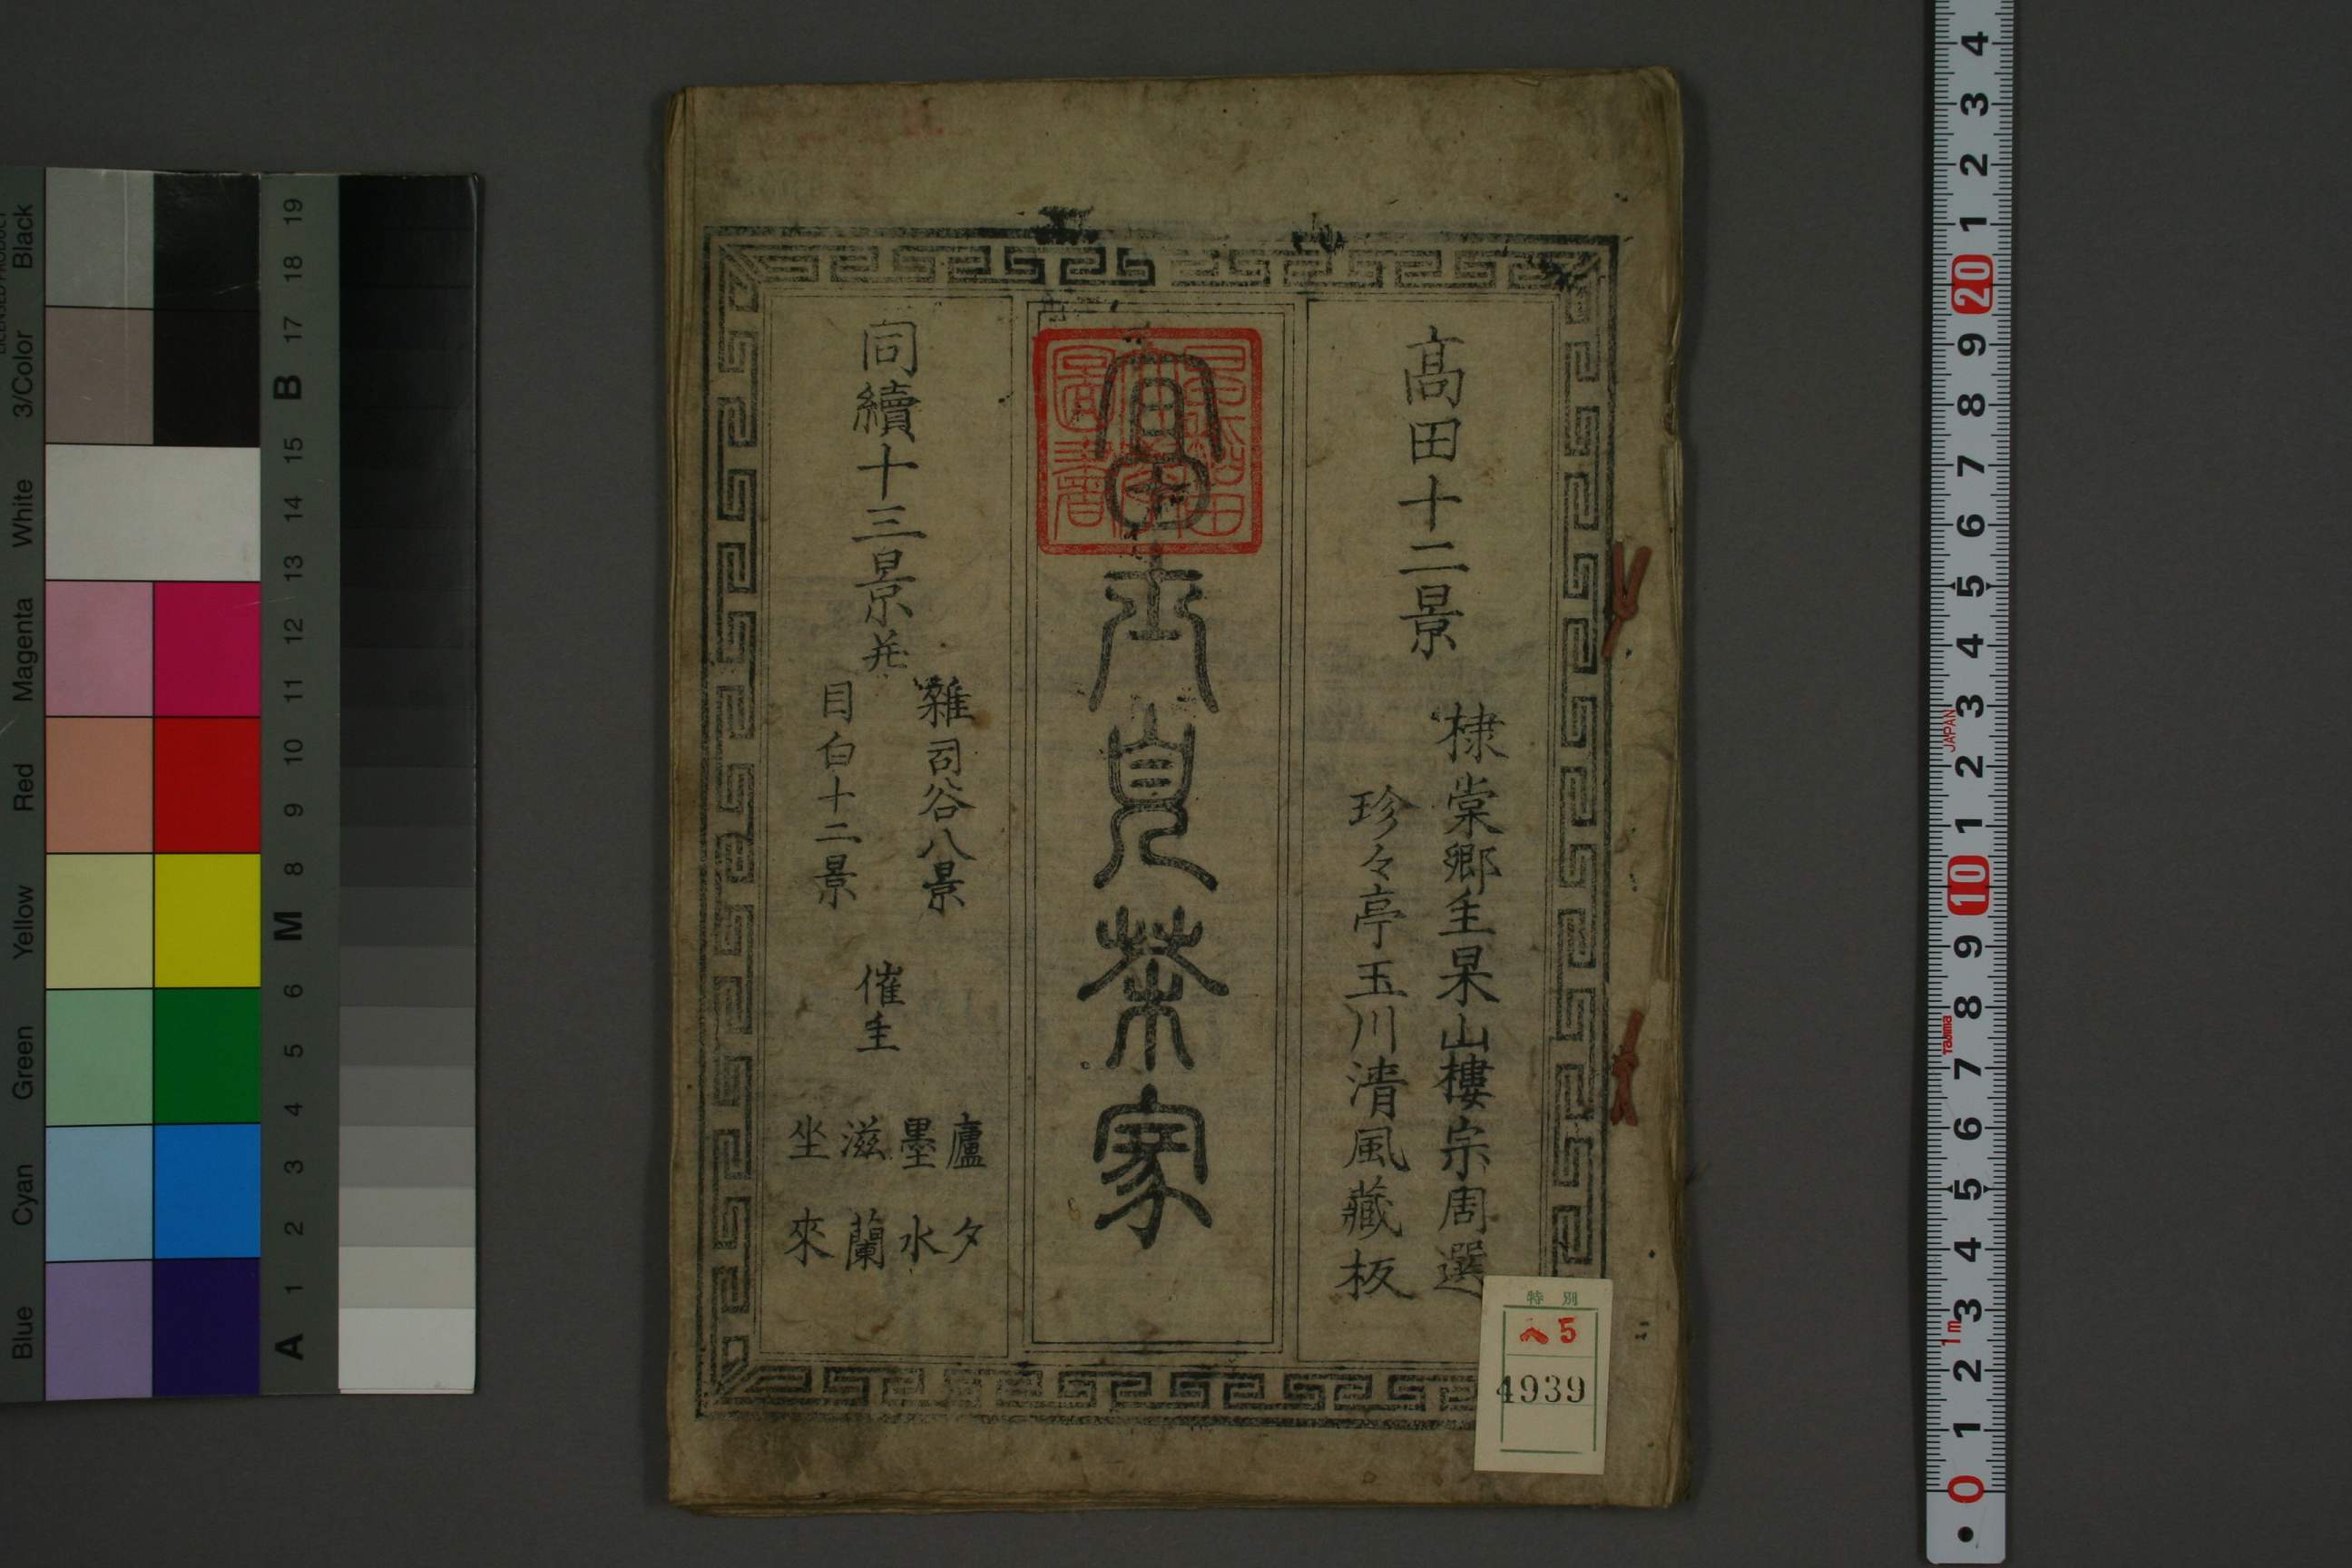 髙田十二景
棣棠郷主杲山樓宗周選
珍々亭玉川清風藏板
富士見茶家
同續十三景并
雜司谷八景
目白十二景
催主
廬夕
墨水
滋蘭
坐來
特別
ヘ5
4939
Black
3/Color
White
Magenta
Red
Yellow
Green
Cyan
Blue
19
18
17
B
15
14
13
12
11
10
9
8
M
6
5
4
3
2
1
A
4
3
2
1
20
9
8
7
6
5
4
3
2
1
10
9
8
7
6
5
4
3
2
1
0
JAPAN
Tajima
1m